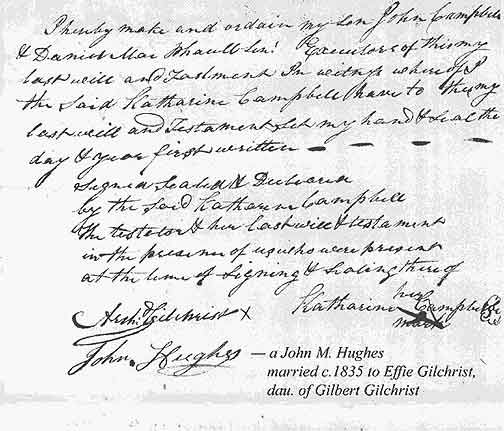 I hereby make and ordain my Son John Campbell
& Daniel Mac Executors of this my
last will and Testment In witness whereof I
the Said Katharine Campbell have to this my
last will and Testament Set my hand & Seal the
day & year first written — — — —
Signed Sealed & Deliverd
by the Said Katharine Campbell
the testetor & her last will & testament
in the presence of us who were present
at the time of Signing & Sealing there of
Archd Gilchrist x
her
Katharine Campbell
mark
John Hughes — a John M. Hughes
married c.1835 to Effie Gilchrist,
dau. of Gilbert Gilchrist